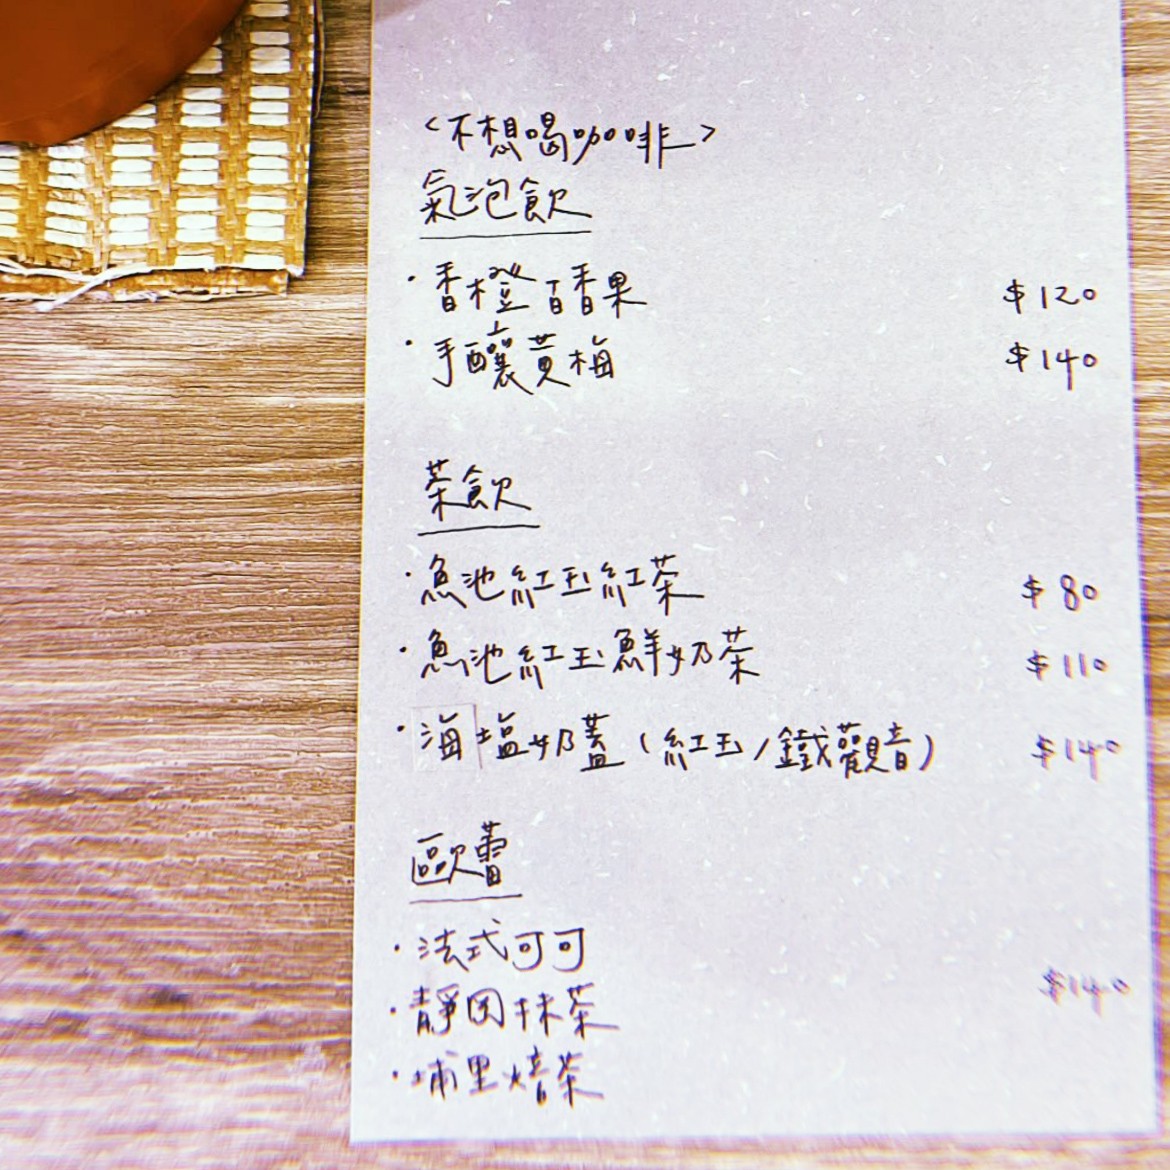 <不想喝咖啡>
氣泡飲
·香橙百香果 $120
·手釀黃梅 $140
茶飲
·魚池紅玉紅茶 $80
·魚池紅玉鮮奶茶 $110
·海塩奶蓋(紅玉/鐵觀音) $140
歐蕾
·法式可可
·靜岡抹茶 $140
·埔里焙茶